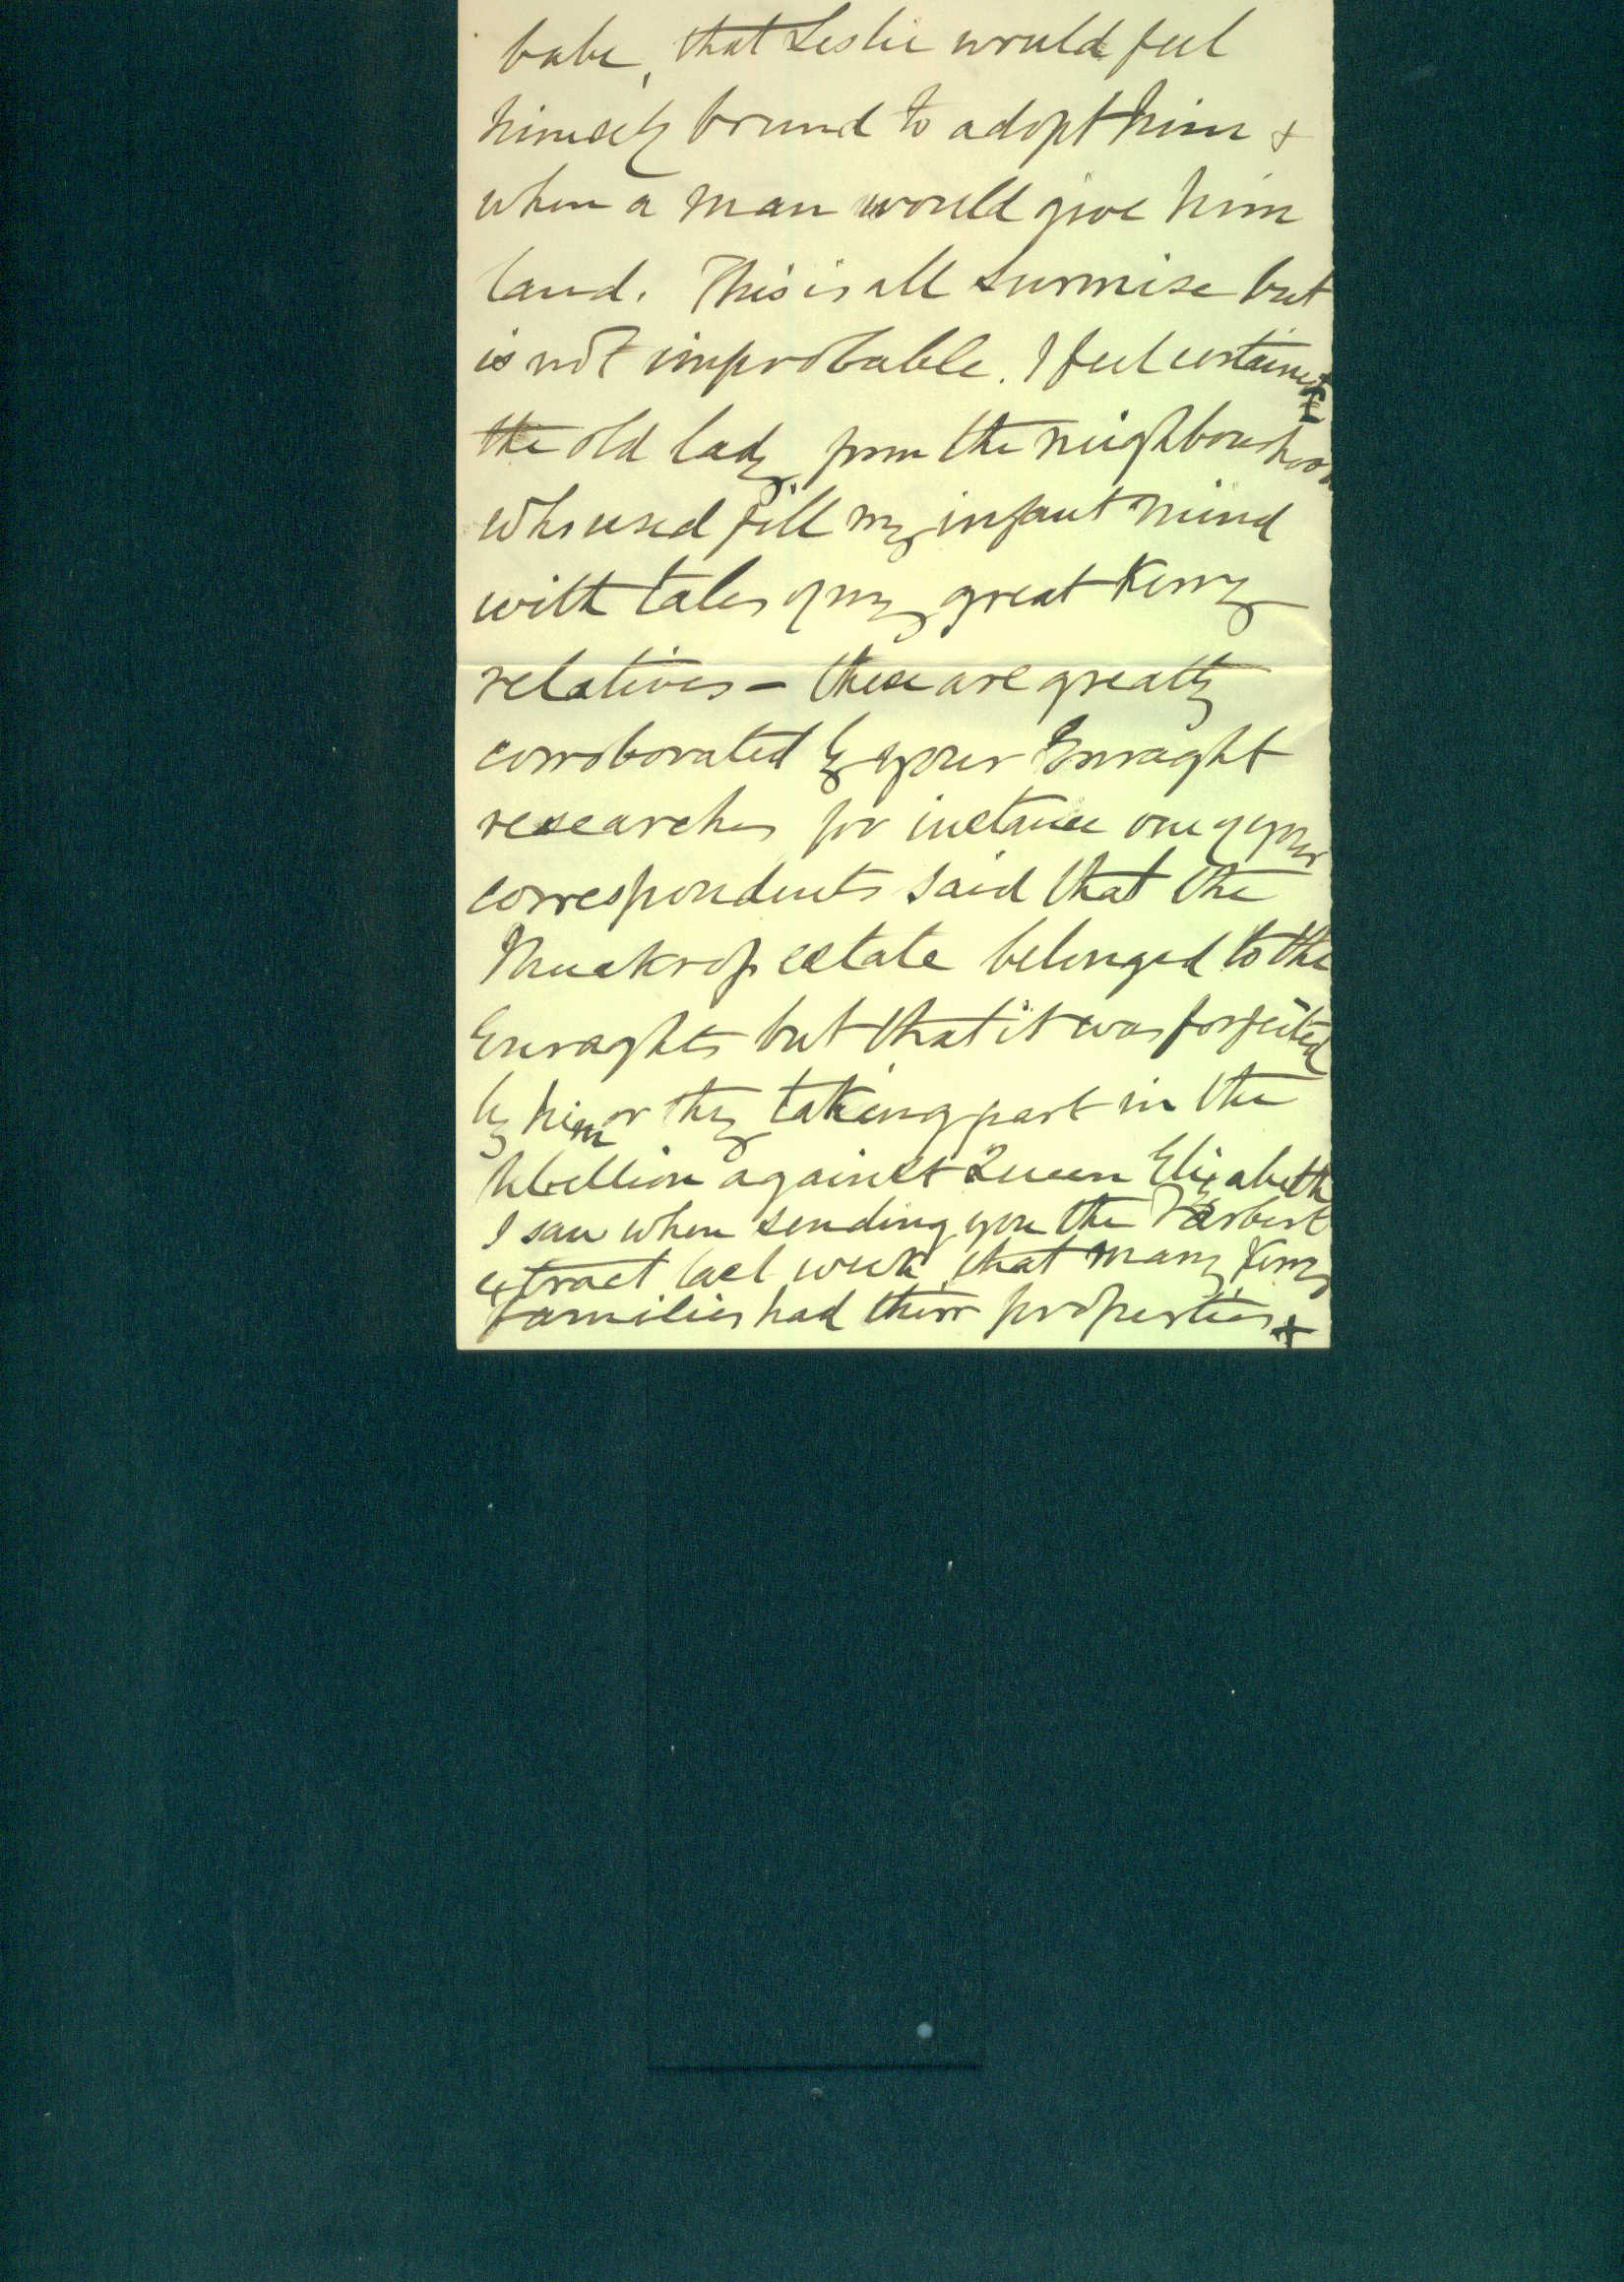 babe, that Leslie would feel
himself bound to adopt him &
when a man would give him
land. This is all surmise but
is not improbable. I feel certain
the old lady from the neighbourhood
who used fill my infant mind
with tales of my great Kerry
relatives – these are greatly
corroborated by your Enraght
researches for instance one of your
correspondents said that the
Muckrop estate belonged to the
Enraghts but that it was forfeited
by him or they taking part in the
rebellion against Queen Elizabeth
I saw when sending you the Herbert
extract last week that many Kerry
families had their properties